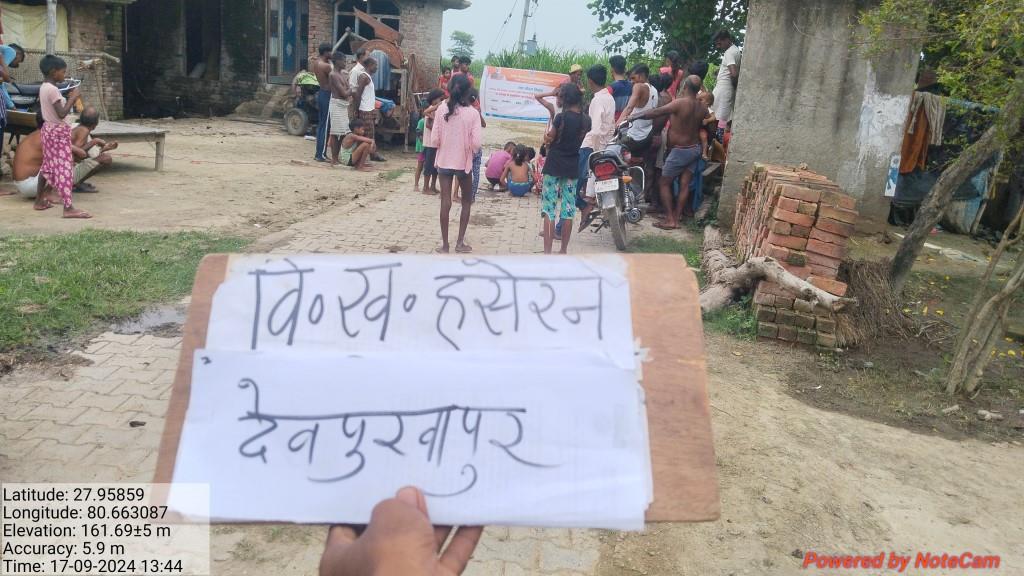 वि॰ख॰ हसेरन
देवपुरवापुर
Latitude: 27.95859
Longitude: 80.663087
Elevation: 161.69±5 m
Accuracy: 5.9 m
Time: 17-09-2024 13:44
Powered by NoteCam